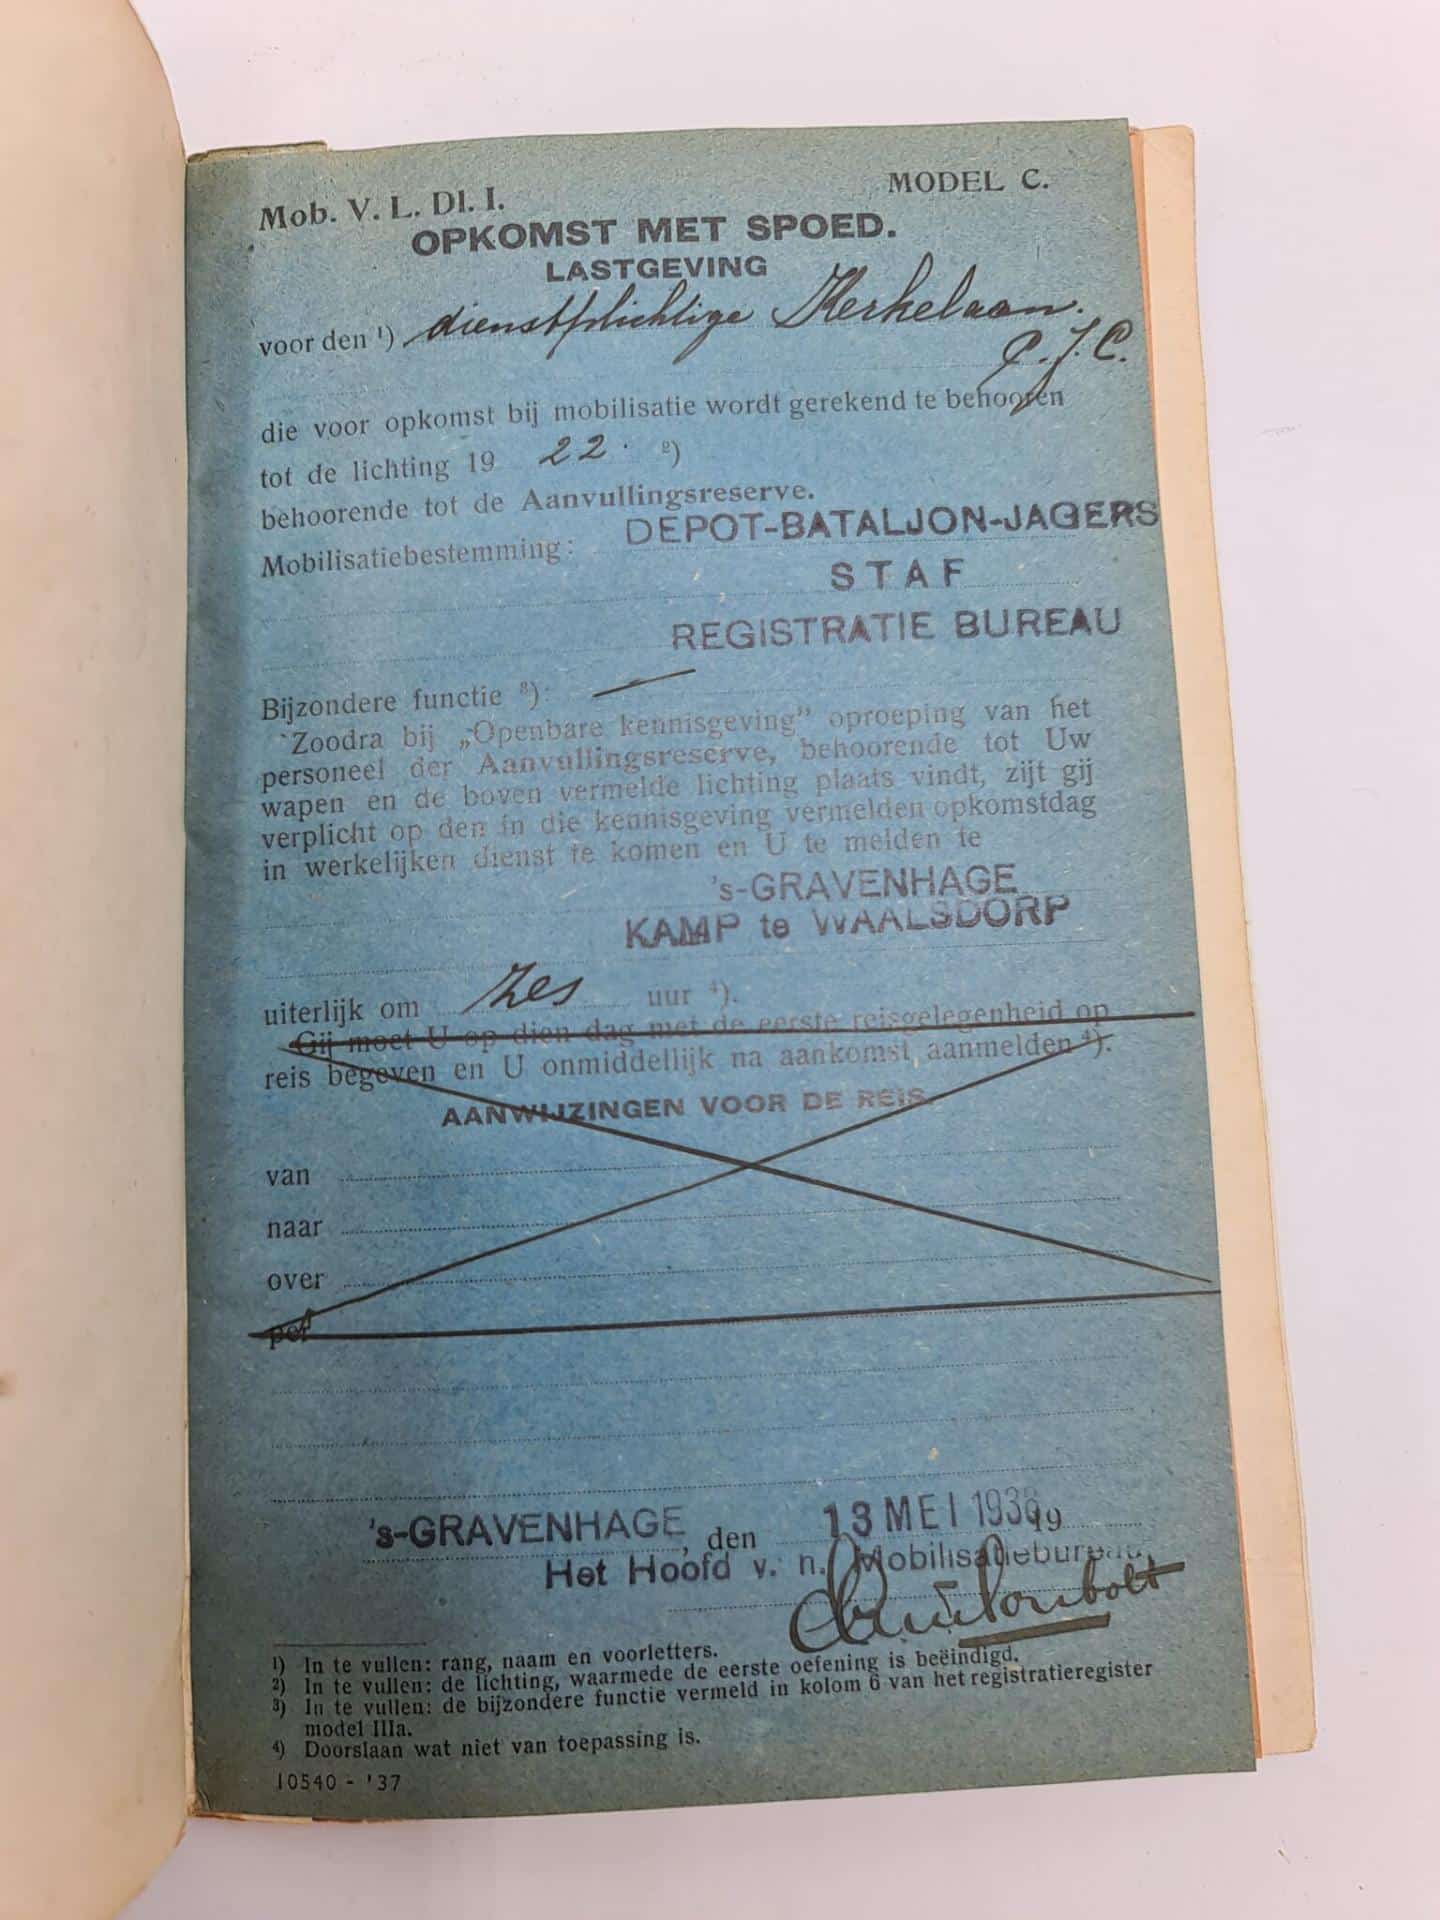 Mob. V. L. Dl. I.
MODEL C.
OPKOMST MET SPOED.
LASTGEVING
voor den ¹) dienstplichtige Kerkelaan.
P.J.C.
die voor opkomst bij mobilisatie wordt gerekend te behooren
tot de lichting 19 22. ²)
behoorende tot de Aanvullingsreserve.
Mobilisatiebestemming: DEPOT-BATALJON-JAGERS
STAF
REGISTRATIE BUREAU
Bijzondere functie ³): —
Zoodra bij „Openbare kennisgeving” oproeping van het
personeel der Aanvullingsreserve, behoorende tot Uw
wapen en de boven vermelde lichting plaats vindt, zijt gij
verplicht op den in die kennisgeving vermelden opkomstdag
in werkelijken dienst te komen en U te melden te
's-GRAVENHAGE
KAMP te WAALSDORP
uiterlijk om zes uur ⁴).
Gij moet U op dien dag met de eerste reisgelegenheid op
reis begeven en U onmiddellijk na aankomst aanmelden ⁴).
AANWIJZINGEN VOOR DE REIS.
van
naar
over
per
's-GRAVENHAGE, den 13 MEI 1938 19
Het Hoofd v. n. Mobilisatiebureau,
¹) In te vullen: rang, naam en voorletters.
²) In te vullen: de lichting, waarmede de eerste oefening is beëindigd.
³) In te vullen: de bijzondere functie vermeld in kolom 6 van het registratieregister
model IIIa.
⁴) Doorslaan wat niet van toepassing is.
10540 - '37